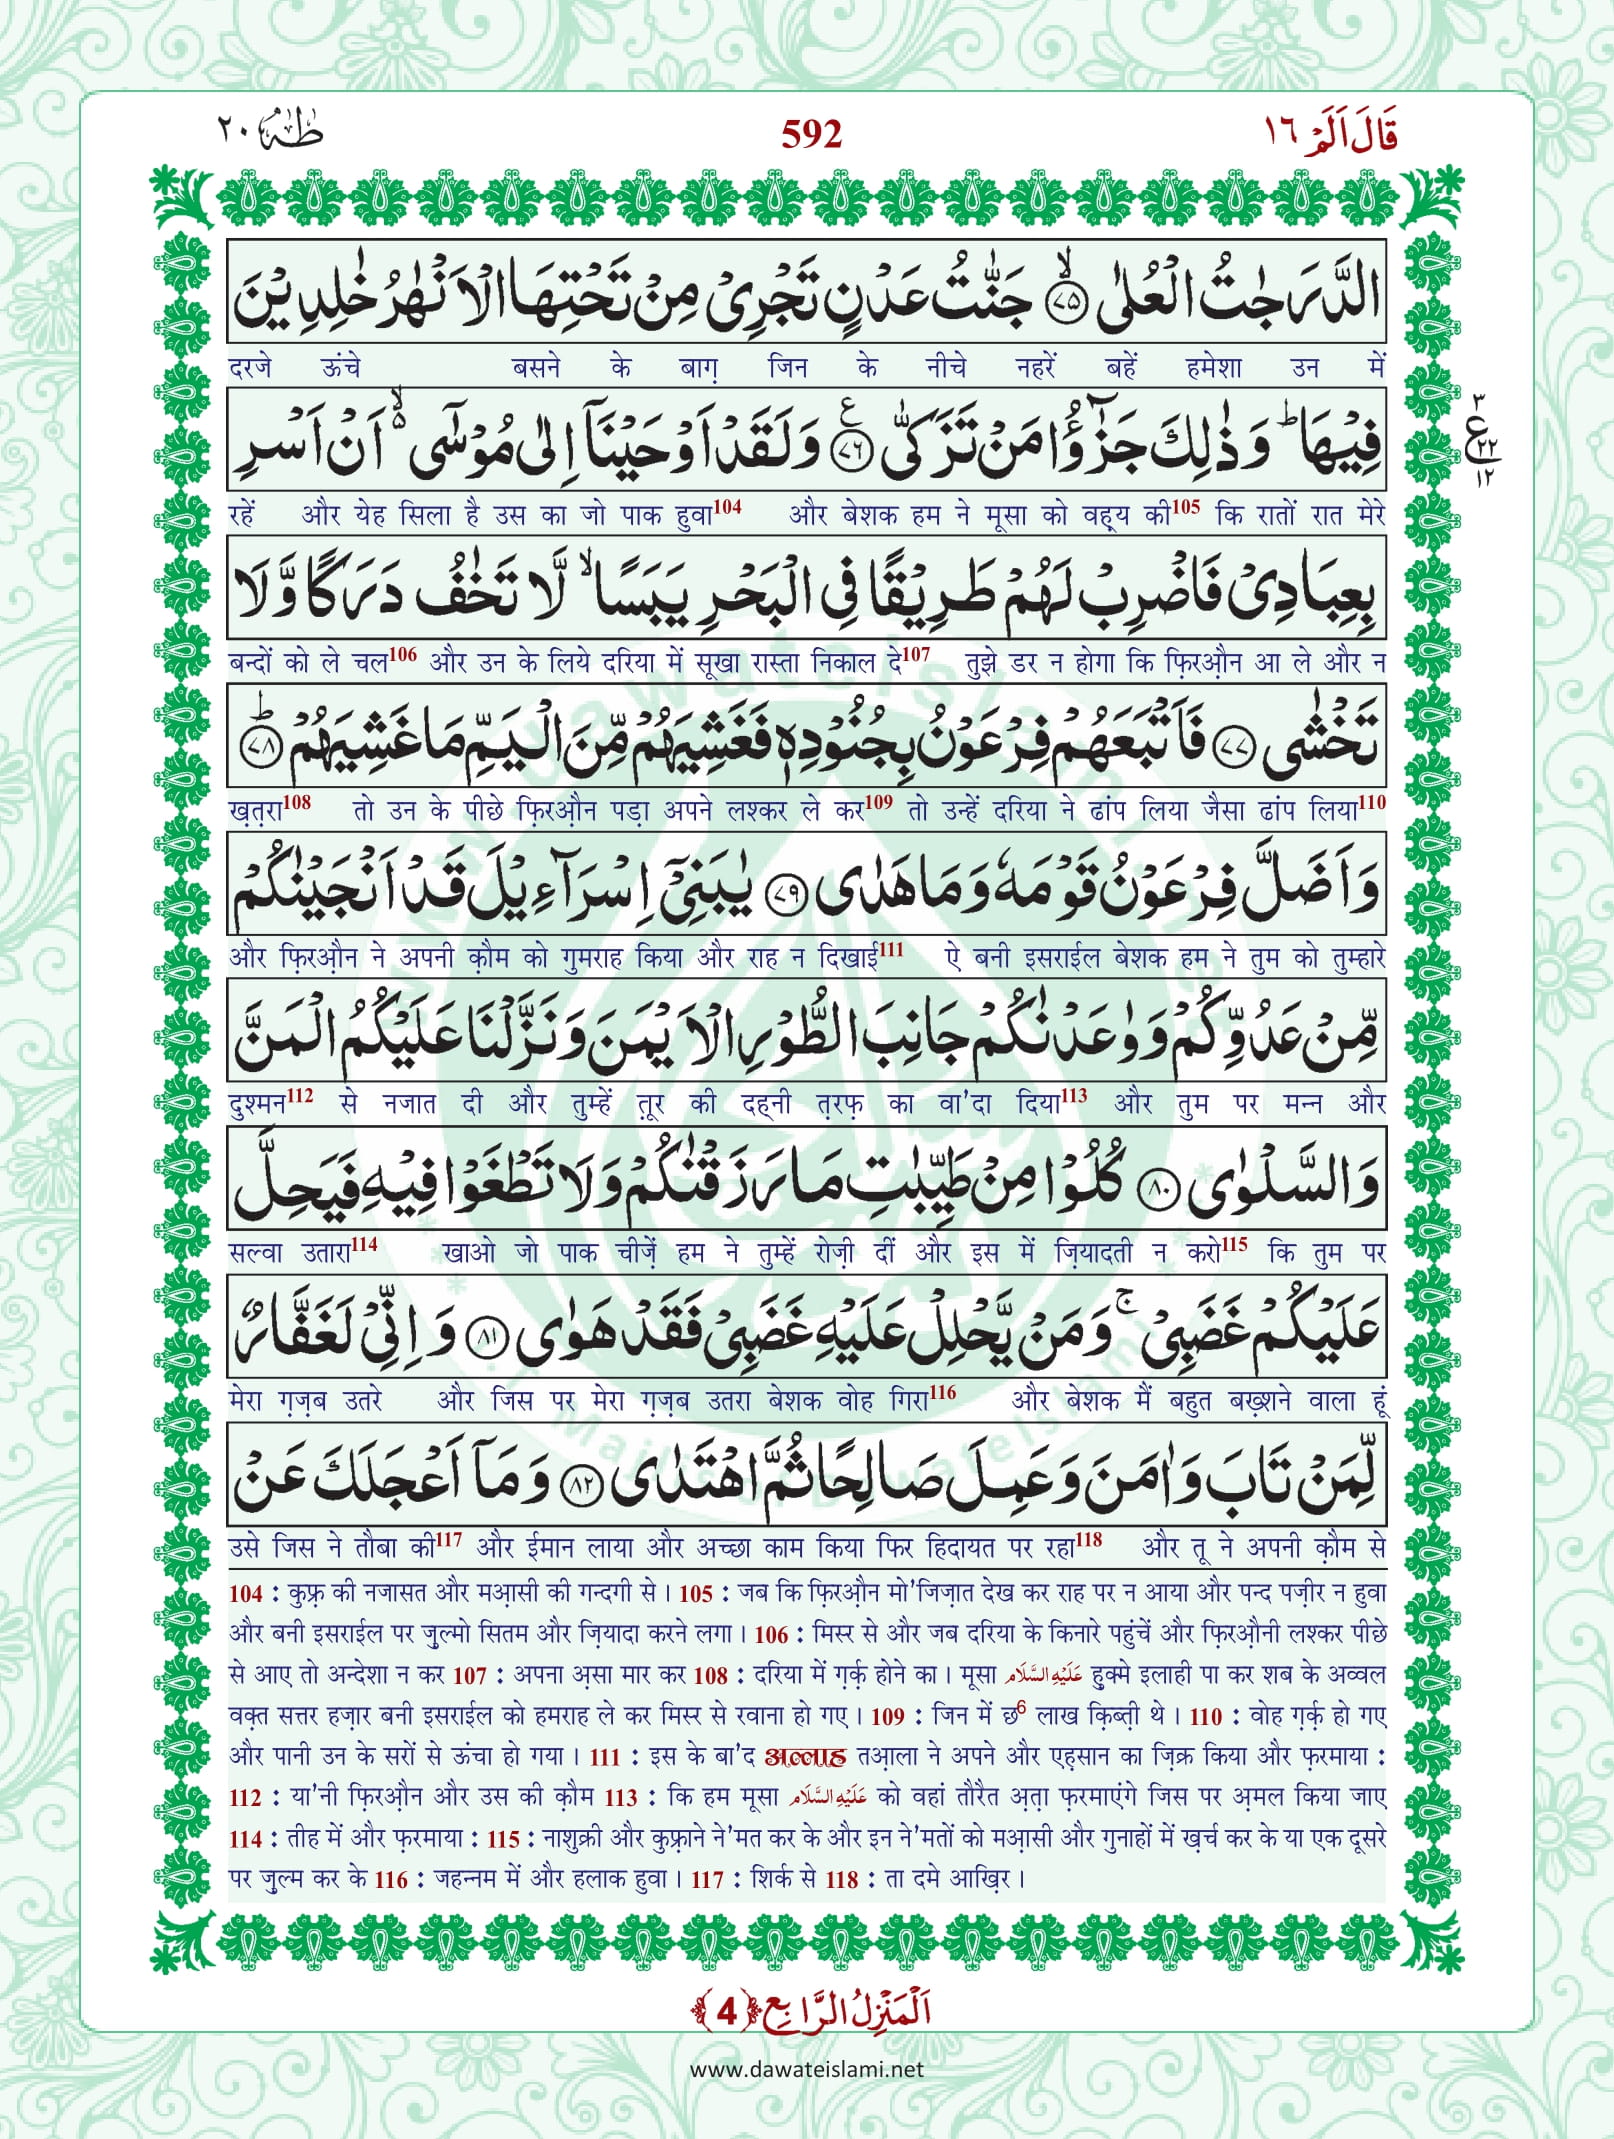 قَالَ اَلَمْ ١٦
592
طٰهٰ ٢٠
الدَّرَجٰتُ الْعُلٰى ۙ﴿٧٥﴾ جَنّٰتُ عَدْنٍ تَجْرِیْ مِنْ تَحْتِهَا الْاَنْهٰرُ خٰلِدِیْنَ
दरजे ऊंचे बसने के बाग़ जिन के नीचे नहरें बहें हमेशा उन में
فِیْهَا ؕ وَ ذٰلِكَ جَزٰٓؤُا مَنْ تَزَكّٰى ﴿٧٦﴾ۧ وَ لَقَدْ اَوْحَیْنَاۤ اِلٰى مُوْسٰۤى ۙ۬ اَنْ اَسْرِ
٣
ع
٢٢
١٢
रहें और येह सिला है उस का जो पाक हुवा104 और बेशक हम ने मूसा को वह़्य की105 कि रातों रात मेरे
بِعِبَادِیْ فَاضْرِبْ لَهُمْ طَرِیْقًا فِی الْبَحْرِ یَبَسًا ۙ لَّا تَخٰفُ دَرَكًا وَّ لَا
बन्दों को ले चल106 और उन के लिये दरिया में सूखा रास्ता निकाल दे107 तुझे डर न होगा कि फ़िरऔ़न आ ले और न
تَخْشٰى ﴿٧٧﴾ فَاَتْبَعَهُمْ فِرْعَوْنُ بِجُنُوْدِهٖ فَغَشِیَهُمْ مِّنَ الْیَمِّ مَا غَشِیَهُمْ ؕ﴿٧٨﴾
ख़त़रा108 तो उन के पीछे फ़िरऔ़न पड़ा अपने लश्कर ले कर109 तो उन्हें दरिया ने ढांप लिया जैसा ढांप लिया110
وَ اَضَلَّ فِرْعَوْنُ قَوْمَهٗ وَ مَا هَدٰى ﴿٧٩﴾ یٰبَنِیْۤ اِسْرَآءِیْلَ قَدْ اَنْجَیْنٰكُمْ
और फ़िरऔ़न ने अपनी क़ौम को गुमराह किया और राह न दिखाई111 ऐ बनी इसराईल बेशक हम ने तुम को तुम्हारे
مِّنْ عَدُوِّكُمْ وَ وٰعَدْنٰكُمْ جَانِبَ الطُّوْرِ الْاَیْمَنَ وَ نَزَّلْنَا عَلَیْكُمُ الْمَنَّ
दुश्मन112 से नजात दी और तुम्हें त़ूर की दहनी त़रफ़ का वा'दा दिया113 और तुम पर मन्न और
وَ السَّلْوٰى ﴿٨٠﴾ كُلُوْا مِنْ طَیِّبٰتِ مَا رَزَقْنٰكُمْ وَ لَا تَطْغَوْا فِیْهِ فَیَحِلَّ
सल्वा उतारा114 खाओ जो पाक चीज़ें हम ने तुम्हें रोज़ी दीं और इस में ज़ियादती न करो115 कि तुम पर
عَلَیْكُمْ غَضَبِیْ ۚ وَ مَنْ یَّحْلِلْ عَلَیْهِ غَضَبِیْ فَقَدْ هَوٰى ﴿٨١﴾ وَ اِنِّیْ لَغَفَّارٌ
मेरा ग़ज़ब उतरे और जिस पर मेरा ग़ज़ब उतरा बेशक वोह गिरा116 और बेशक मैं बहुत बख़्शने वाला हूं
لِّمَنْ تَابَ وَ اٰمَنَ وَ عَمِلَ صَالِحًا ثُمَّ اهْتَدٰى ﴿٨٢﴾ وَ مَاۤ اَعْجَلَكَ عَنْ
उसे जिस ने तौबा की117 और ईमान लाया और अच्छा काम किया फिर हिदायत पर रहा118 और तू ने अपनी क़ौम से
104 : कुफ़्र की नजासत और मआ़सी की गन्दगी से। 105 : जब कि फ़िरऔ़न मो'जिज़ात देख कर राह पर न आया और पन्द पज़ीर न हुवा
और बनी इसराईल पर ज़ुल्मो सितम और ज़ियादा करने लगा। 106 : मिस्र से और जब दरिया के किनारे पहुंचें और फ़िरऔ़नी लश्कर पीछे
से आए तो अन्देशा न कर 107 : अपना अ़सा मार कर 108 : दरिया में ग़र्क़ होने का। मूसा عَلَیْهِ السَّلَام हुक्मे इलाही पा कर शब के अव्वल
वक़्त सत्तर हज़ार बनी इसराईल को हमराह ले कर मिस्र से रवाना हो गए। 109 : जिन में छ6 लाख क़िब्त़ी थे। 110 : वोह ग़र्क़ हो गए
और पानी उन के सरों से ऊंचा हो गया। 111 : इस के बा'द अल्लाह तआ़ला ने अपने और एह़सान का ज़िक्र किया और फ़रमाया :
112 : या'नी फ़िरऔ़न और उस की क़ौम 113 : कि हम मूसा عَلَیْهِ السَّلَام को वहां तौरैत अ़त़ा फ़रमाएंगे जिस पर अ़मल किया जाए
114 : तीह में और फ़रमाया : 115 : नाशुक्री और कुफ़्राने ने'मत कर के और इन ने'मतों को मआ़सी और गुनाहों में ख़र्च कर के या एक दूसरे
पर ज़ुल्म कर के 116 : जहन्नम में और हलाक हुवा। 117 : शिर्क से 118 : ता दमे आख़िर।
اَلْمَنْزِلُ الرَّابِع ﴿4﴾
www.dawateislami.net